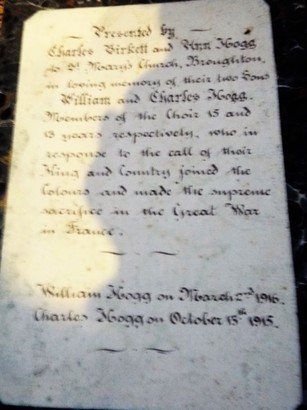 Presented by
Charles Birkett and Ann Hogg
to St. Mary's Church, Broughton,
in loving memory of their two Sons
William and Charles Hogg.
Members of the Choir 15 and
13 years respectively, who in
response to the call of their
King and Country joined the
Colours and made the supreme
sacrifice in the Great War
in France.
William Hogg on March 2nd 1916.
Charles Hogg on October 13th 1915.